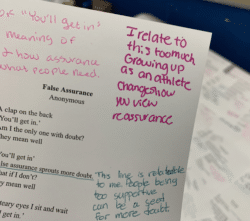 "You'll get in"
meaning of
how assurance
what people need.
I relate to
this too much
Growing up
as an athlete
changes how
you view
reassurance
False Assurance
Anonymous
A clap on the back
'You'll get in.'
am I the only one with doubt?
they mean well
You'll get in'
false assurance sprouts more doubt.
what if I don't?
ey mean well
teary eyes I sit and wait
get in.'
This line is relatable
to me. People being
too supportive
can be a seed
for more doubt